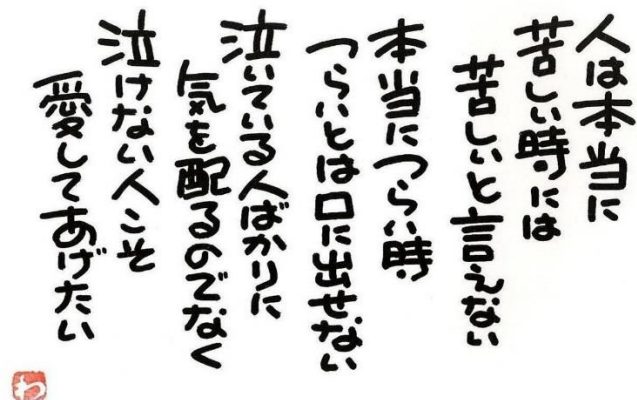 人は本当に
苦しい時には
苦しいと言えない
本当につらい時
つらいとは口に出せない
泣いている人ばかりに
気を配るのでなく
泣けない人こそ
愛してあげたい
わ